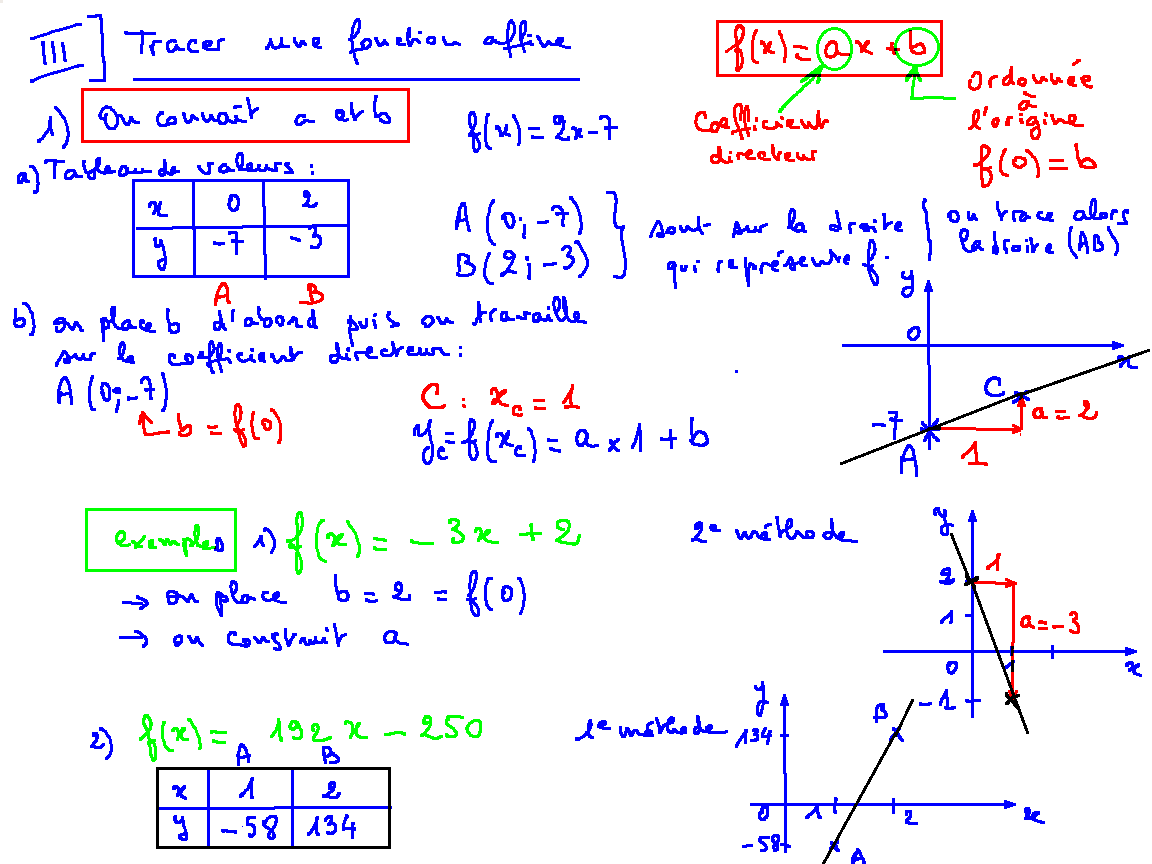 III] Tracer une fonction affine
f(x) = ax + b
Coefficient directeur
Ordonnée à l'origine
f(0) = b
1) On connaît a et b
f(x) = 2x-7
a) Tableau de valeurs :
x 0 2
y -7 -3
A B
A (0; -7)
B (2; -3)
sont sur la droite
qui représente f.
on trace alors
la droite (AB)
b) on place b d'abord puis on travaille
sur le coefficient directeur :
A (0; -7)
b = f(0)
C : xc = 1
yc = f(xc) = a × 1 + b
y
0
x
C
a = 2
-7
A
1
exemples 1) f(x) = -3x + 2
2e méthode
→ on place b = 2 = f(0)
→ on construit a
y
2
1
1
a = -3
0
1
x
-1
2) f(x) = 192x - 250
1e méthode
A B
x 1 2
y -58 134
y
B
134
0
1
2
x
-58
A